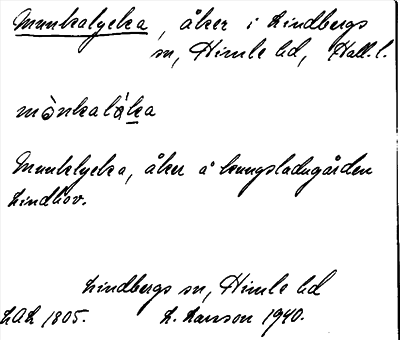 Munkalycka, åker i Lindbergs
sn, Himle hd, Hall. l.
mònkalò̗ka
Munklycka, åker å kungsladugården
Lindhov.
Lindbergs sn, Himle hd
LAL 1805. L. Larsson 1940.